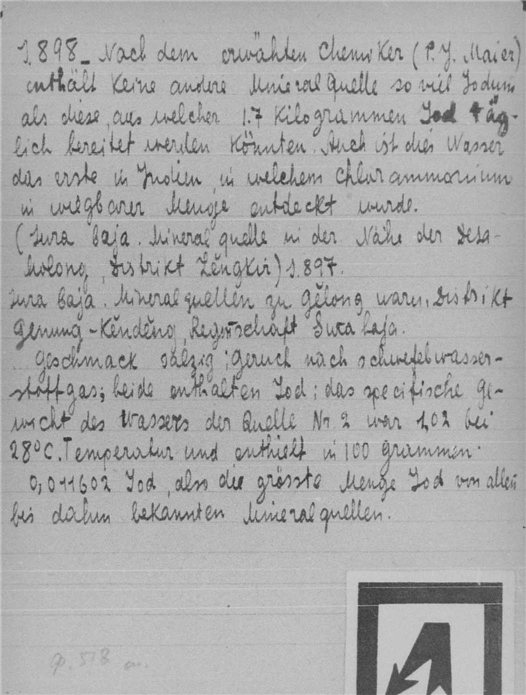 S. 898_ Nach dem erwähten Chemiker (P. J. Maier)
enthält keine andere Mineral Quelle so viel Jodium
als diese, aus welcher 1.7 Kilogrammen Iod täg-
lich bereitet werden könnten. Auch ist dies Wasser
das erste in Indien, in welchem Chlorammonium
in wiegbarer Menge entdeckt wurde.
(Sura baja. Mineralquelle in der Nähe der Desa-
Molong, Distrikt Lĕngkir) S. 897.
Sura baja. Mineralquellen zu Gĕlong waru, Distrikt
Genung-Kĕndĕng, Regentschaft Surabaja.
Geschmack salzig; Geruch nach schwefelwasser-
stoffgas; beide enthalten Iod; das specifische Ge-
wicht des Wassers der Quelle Nr 2 war 1,02 bei
28°C. Temperatur und enthielt in 100 grammen.
0,011602 Iod, also die grösste Menge Iod von allen
bis dahin bekannten Mineralquellen.